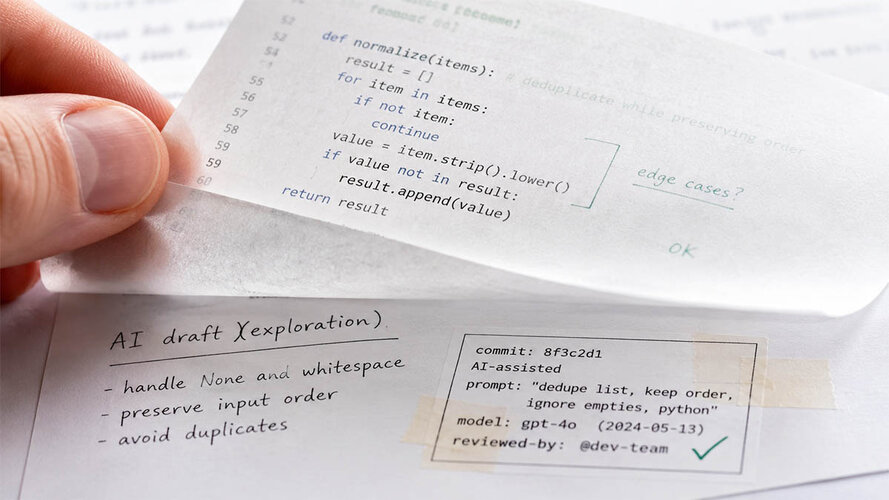 52
52 def normalize(items): # deduplicate while preserving order
54 result = []
for item in items:
55 if not item:
56 continue
57 value = item.strip().lower()
58 if value not in result:
59 result.append(value)
59 return result
60
edge cases?
OK
AI draft )(exploration)
- handle None and whitespace
- preserve input order
- avoid duplicates
commit: 8f3c2d1
AI-assisted
prompt: "dedupe list, keep order,
ignore empties, python"
model: gpt-4o (2024-05-13)
reviewed-by: @dev-team ✓